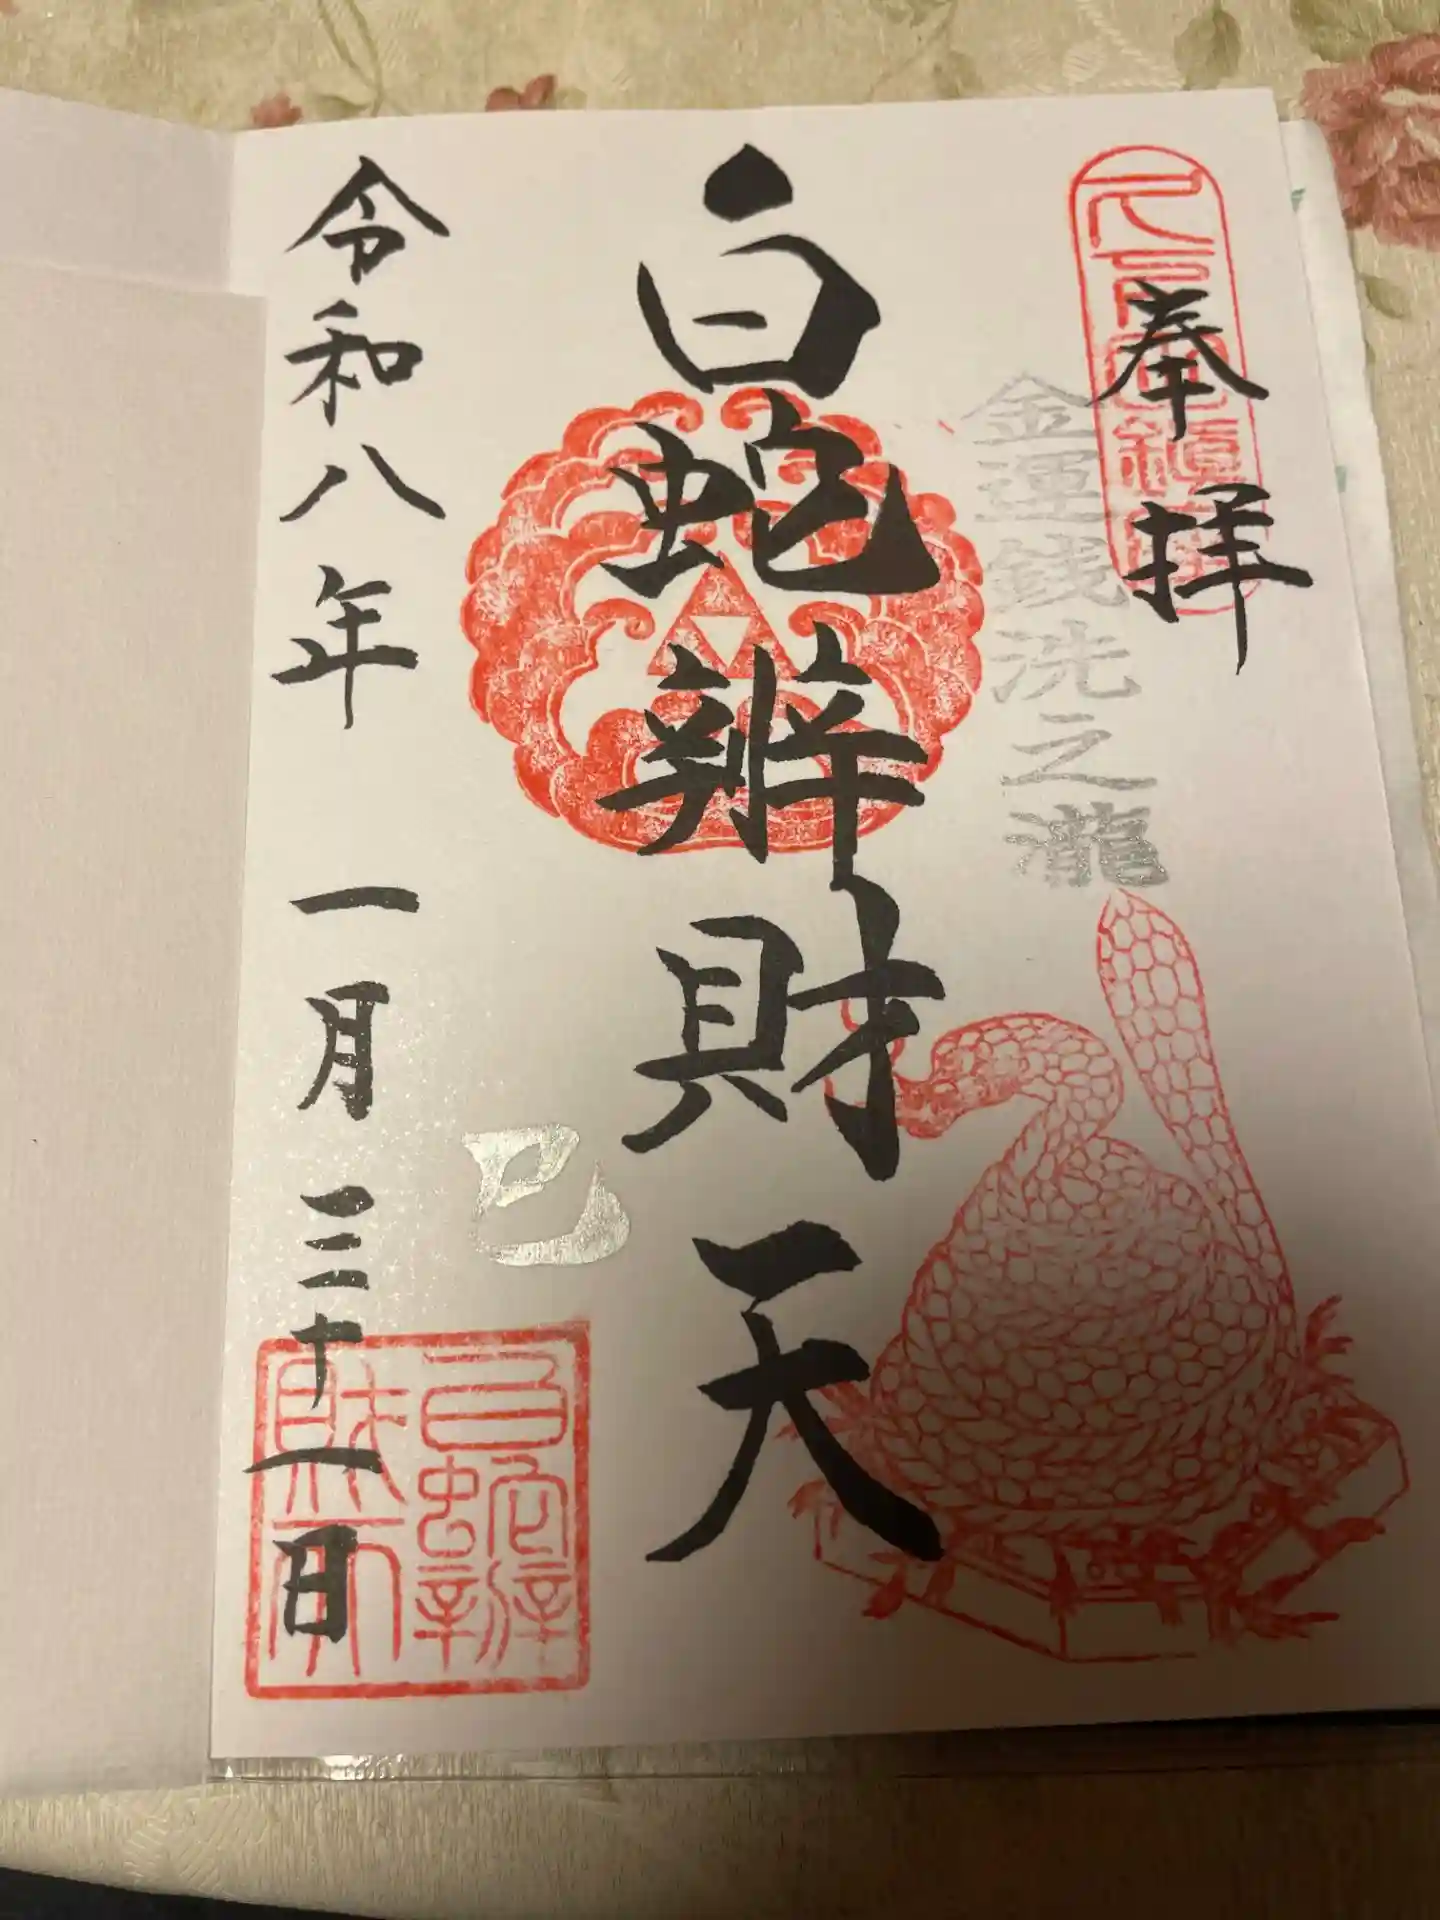 奉拝
金運銭洗之瀧
白蛇辨財天
巳
令和八年 一月三十一日
白蛇辨
財天